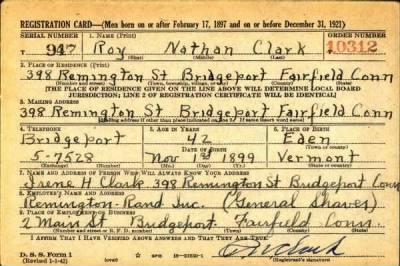 REGISTRATION CARD—(Men born on or after February 17, 1897 and on or before December 31, 1921)
SERIAL NUMBER 1. NAME (Print) ORDER NUMBER
947 Roy Nathan Clark 10312
(First) (Middle) (Last)
2. PLACE OF RESIDENCE (Print)
398 Remington St Bridgeport Fairfield Conn
(Number and street) (Town, township, village, or city) (County) (State)
[THE PLACE OF RESIDENCE GIVEN ON THE LINE ABOVE WILL DETERMINE LOCAL BOARD
JURISDICTION; LINE 2 OF REGISTRATION CERTIFICATE WILL BE IDENTICAL]
3. MAILING ADDRESS
398 Remington St Bridgeport Fairfield Conn
[Mailing address if other than place indicated on line 2. If same insert word same]
4. TELEPHONE 5. AGE IN YEARS 6. PLACE OF BIRTH
Bridgeport 42 Eden
DATE OF BIRTH (Town or county)
5-7528 Nov 1899 Vermont
(Exchange) (Number) (Mo.) (Day) (Yr.) (State or country)
7. NAME AND ADDRESS OF PERSON WHO WILL ALWAYS KNOW YOUR ADDRESS
Irene H Clark 398 Remington St Bridgeport Conn
8. EMPLOYER'S NAME AND ADDRESS
Remington-Rand Inc. (General Shaver)
9. PLACE OF EMPLOYMENT OR BUSINESS
2 Main St Bridgeport Fairfield Conn.
(Number and street or R. F. D. number) (Town) (County) (State)
I AFFIRM THAT I HAVE VERIFIED ABOVE ANSWERS AND THAT THEY ARE TRUE.
D. S. S. Form 1
(Revised 1-1-42) (over) (Registrant's signature)